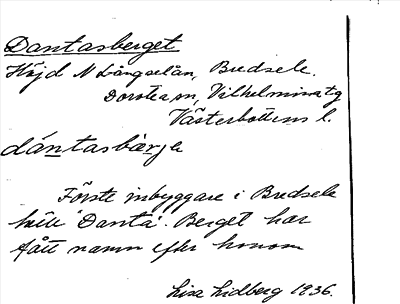 Dantasberget
Höjd N Långselån, Bredsele.
Dorotea sn, Vilhelmina tg
Västerbottens l.
dántasbärje
Förste inbyggare i Bredsele
hette "Danta". Berget har
fått namn efter honom
Lisa Lidberg 1936.